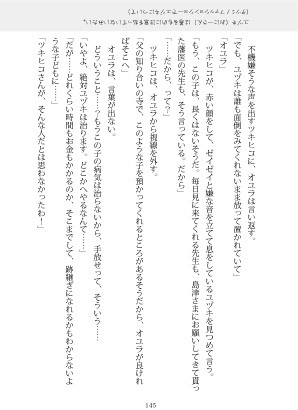 不機嫌そうな声を出すツキヒコに、オユラは言い返す。
「でも、ユヅキは誰も面倒をみてくれないまま放って置かれていて」
「オユラ」
ツキヒコが、赤い顔をして、ゼイゼイと嫌な音を立てて息をしているユヅキを見つめて言う。
「もう、この子は、長くはないそうだ。毎日見に来てくれる先生も、島津さまにお願いしてきて貰っ
た藩医の先生も、そう言っている。だから」
「……だから、って?」
ツキヒコが、オユラから視線を外す。
「父の知り合いの寺で、このような子を預かってくれるところがあるそうだから、オユラが良けれ
ばそこへ」
オユラは、言葉が出ない。
どういうこと……?もうこの子の病気は治らないから、手放せって、そういう……
「いやよ、絶対ユヅキは治ります。どこへやるなんて……」
「だが……どれくらい時間もお金もかかるのか、そこまでして、跡継ぎになれるかもわからないよ
うな子どもに……」
「ツキヒコさんが、そんな人だとは思わなかったわー」
145